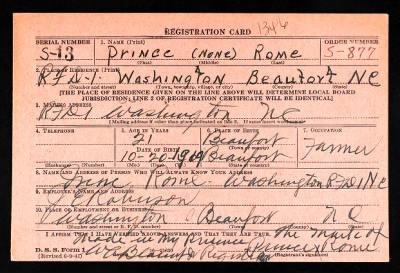 REGISTRATION CARD
1346
SERIAL NUMBER 1. NAME (Print) ORDER NUMBER
S-13 Prince (None) Rome S-877
(First) (Middle) (Last)
2. PLACE OF RESIDENCE (Print)
R.F.D-1. Washington Beaufort N C
(Number and street) (Town, township, village, or city) (County) (State)
[THE PLACE OF RESIDENCE GIVEN ON THE LINE ABOVE WILL DETERMINE LOCAL BOARD
JURISDICTION; LINE 2 OF REGISTRATION CERTIFICATE WILL BE IDENTICAL]
3. MAILING ADDRESS
RFD1 Washington NC
[Mailing address if other than place indicated on line 2. If same, insert word same]
4. TELEPHONE 5. AGE IN YEARS 6. PLACE OF BIRTH 7. OCCUPATION
21 Beaufort
DATE OF BIRTH
10-20-1919 Beaufort Farmer
(Exchange) (Number) (Mo.) (Day) (Yr.) (State or country)
8. NAME AND ADDRESS OF PERSON WHO WILL ALWAYS KNOW YOUR ADDRESS
Rome Washington RFD1 NC
9. EMPLOYER'S NAME AND ADDRESS
J E Robinson
10. PLACE OF EMPLOYMENT OR BUSINESS
Washington Beaufort NC
(Number and street or R. F. D. number) (Town) (County) (State)
I AFFIRM THAT I HAVE VERIFIED ABOVE ANSWERS AND THAT THEY ARE TRUE.
Made in my presence The mark of
Prince Rome
D. S. S. Form 1
(Revised 6-9-41) (Registrant's signature)